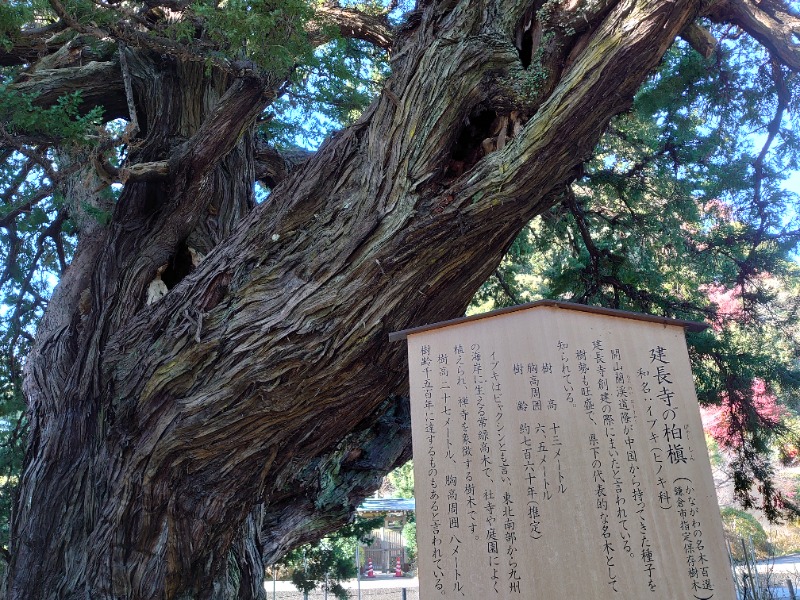 建長寺の柏槇
びゃくしん
(かながわの名木百選
鎌倉市指定保存樹木)
和名:イブキ(ヒノキ科)
開山蘭渓道隆が中国から持ってきた種子を
建長寺創建の際にまいたと言われている。
樹勢も旺盛で、県下の代表的な名木として
知られている。
樹高 十三メートル
胸高周囲 六・五メートル
樹齢 約七百六十年(推定)
イブキはビャクシンとも言い、東北南部から九州
の海岸に生える常緑高木で、社寺や庭園によく
植えられ、禅寺を象徴する樹木です。
樹高 二十七メートル、胸高周囲 八メートル、
樹齢千五百年に達するものもあると言われている。